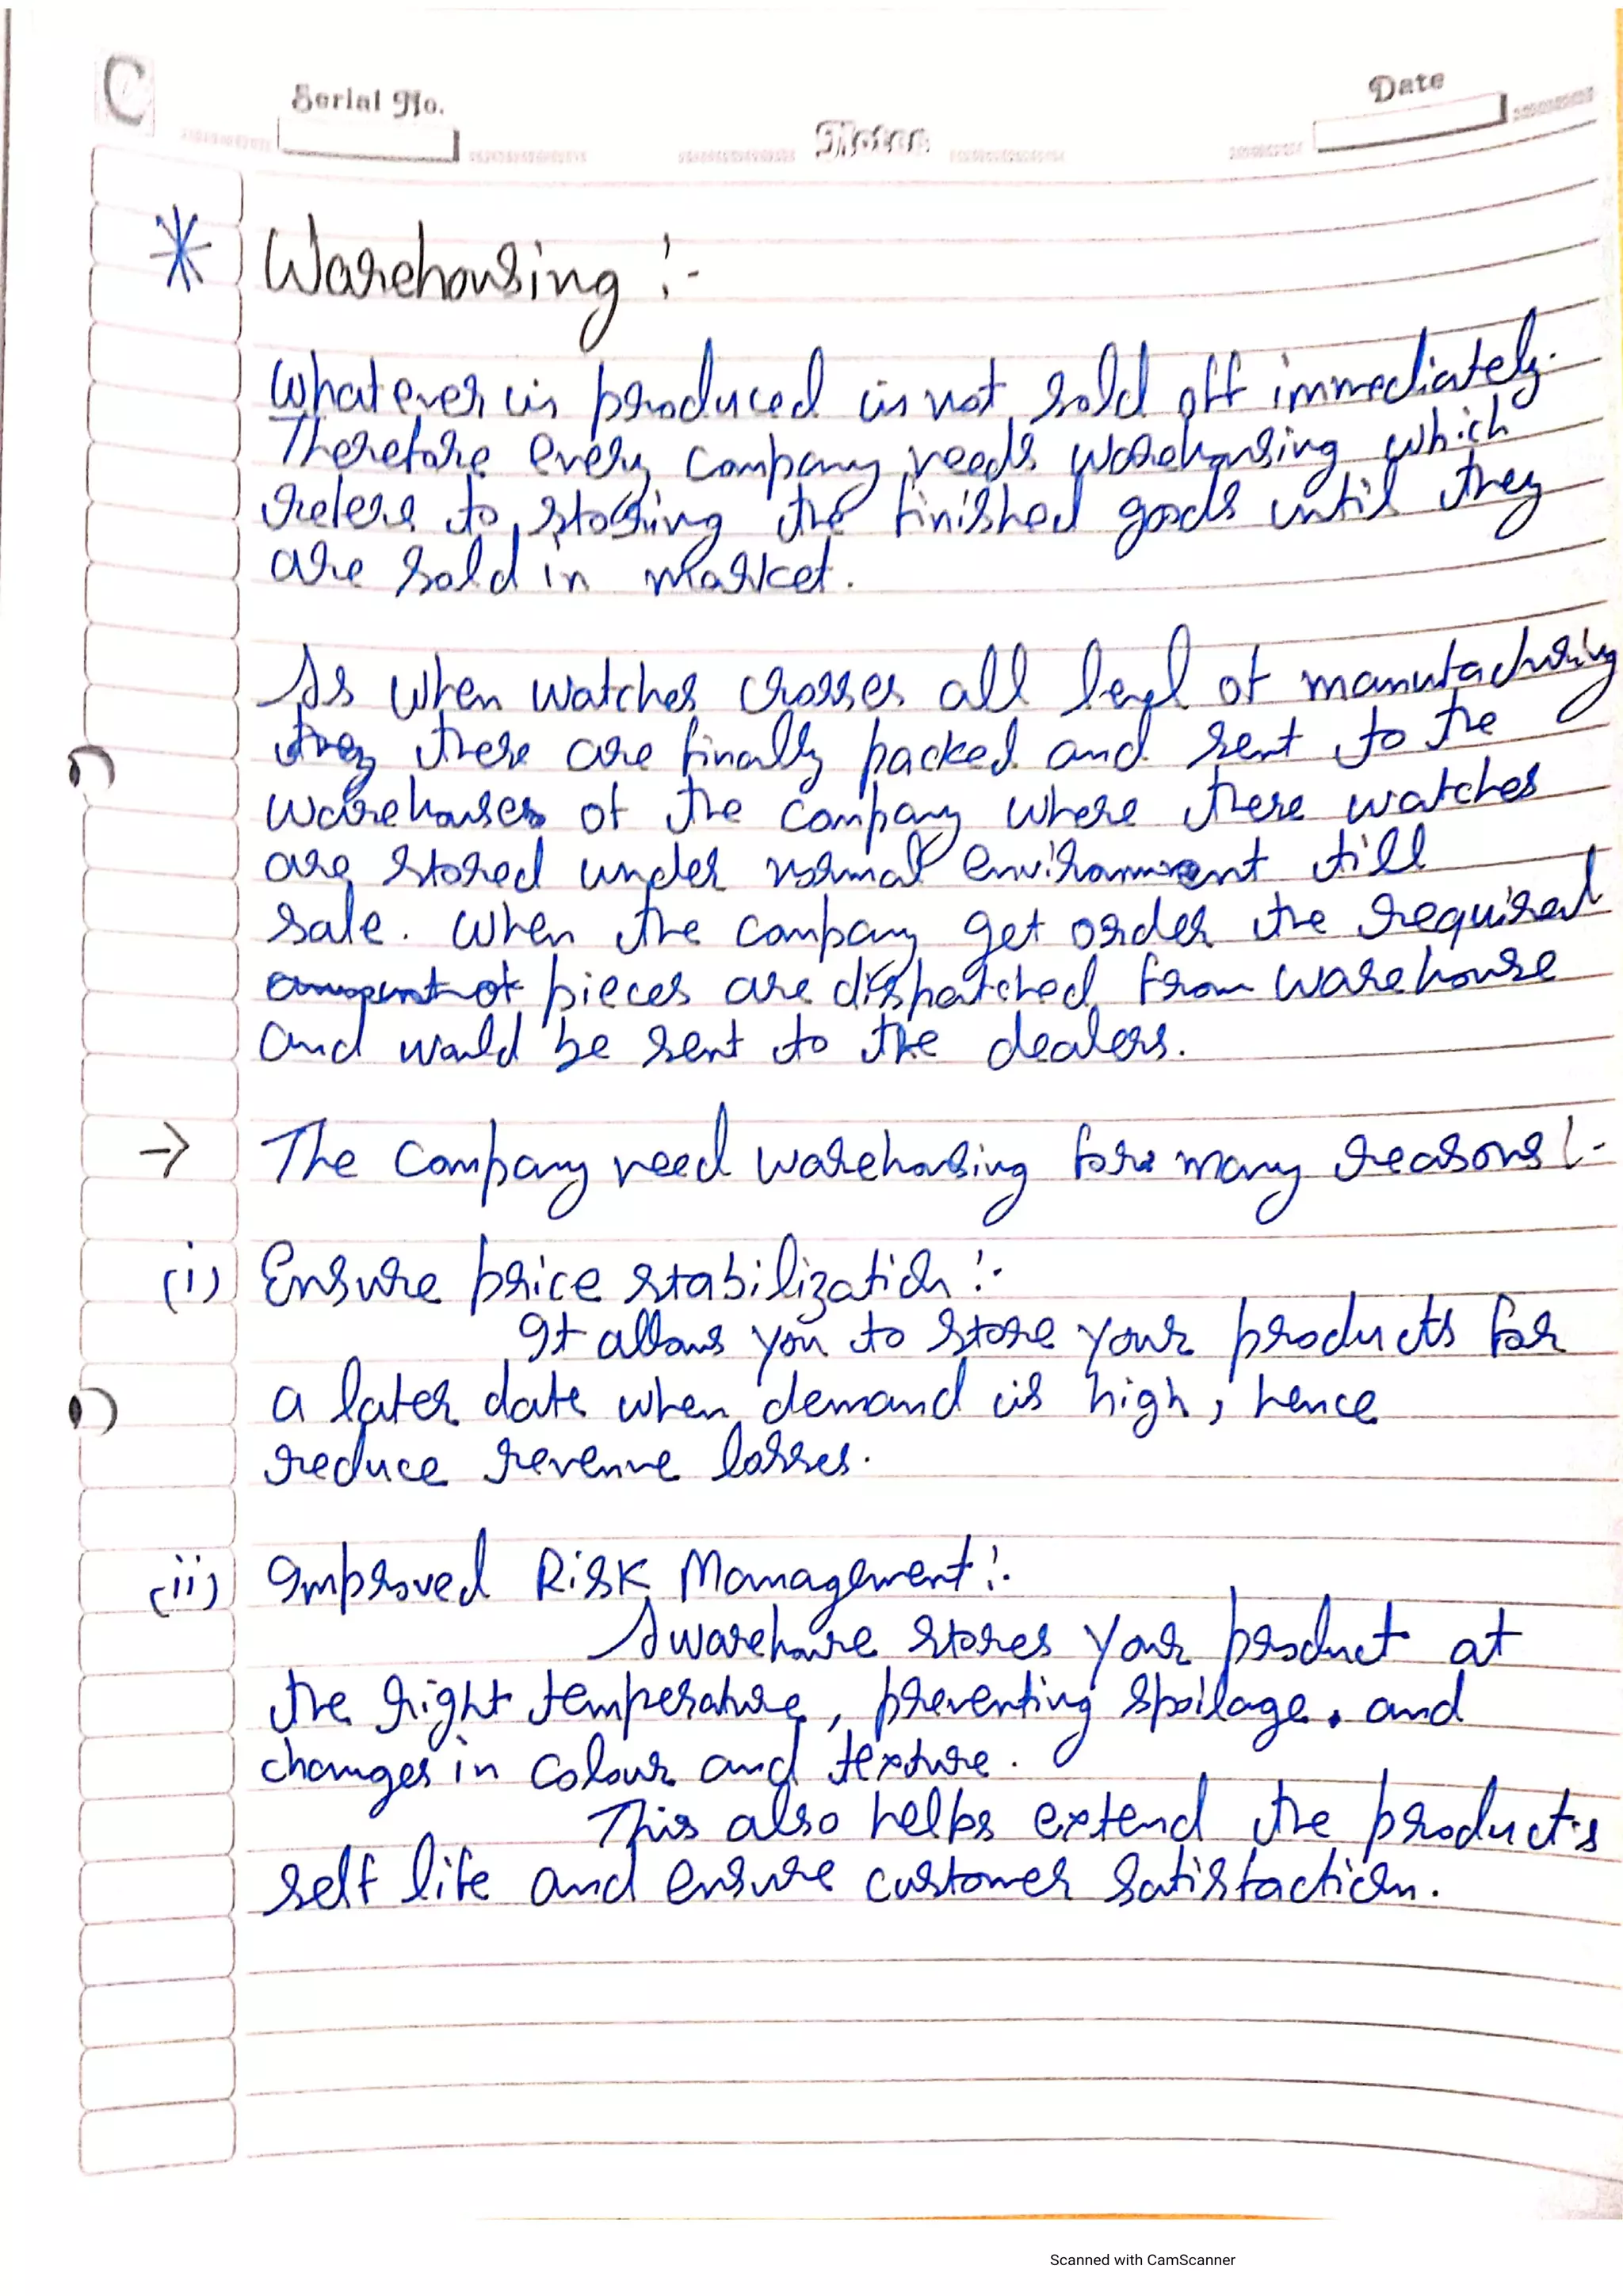 C
Serial No.
Date
Notes
* Warehousing :-
Whatever is produced is not sold off immediately.
Therefore every company needs warehousing which
refers to storing the finished goods until they
are sold in market.
As when watches crosses all level of manufacturing
they these are finally packed and sent to the
warehouses of the company where these watches
are stored under normal environment till
sale. When the company get order the required
amount of pieces are dispatched from warehouse
and would be sent to the dealers.
→ The company need warehousing for many reasons :-
(i) Ensure price stabilization :-
It allows you to store your products for
a later date when demand is high, hence
reduce revenue losses.
(ii) Improved Risk Management :-
A warehouse stores your product at
the right temperature, preventing spoilage. and
changes in colour and texture.
This also helps extend the product's
self life and ensure customer satisfaction.
Scanned with CamScanner